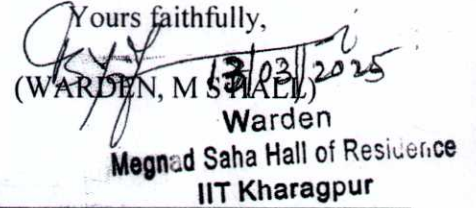 Yours faithfully,
13/03/2025
(WARDEN, M S HALL)
Warden
Megnad Saha Hall of Residence
IIT Kharagpur